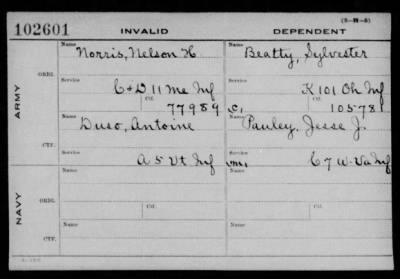 (3-H-5)
102601 INVALID DEPENDENT
Name Name
Norris, Nelson H. Beatty, Sylvester
ORIG.
Service Service
C & D 11 Me Inf K 101 Oh Inf
Ctf. Ctf.
77989 105781
ARMY
Name Name
Duso, Antoine Pauley, Jesse J.
CTF.
Service Service
A 5 Vt Inf C 7 W. Va Inf
Name Name
ORIG.
Ctf. Ctf.
NAVY
Name Name
CTF.